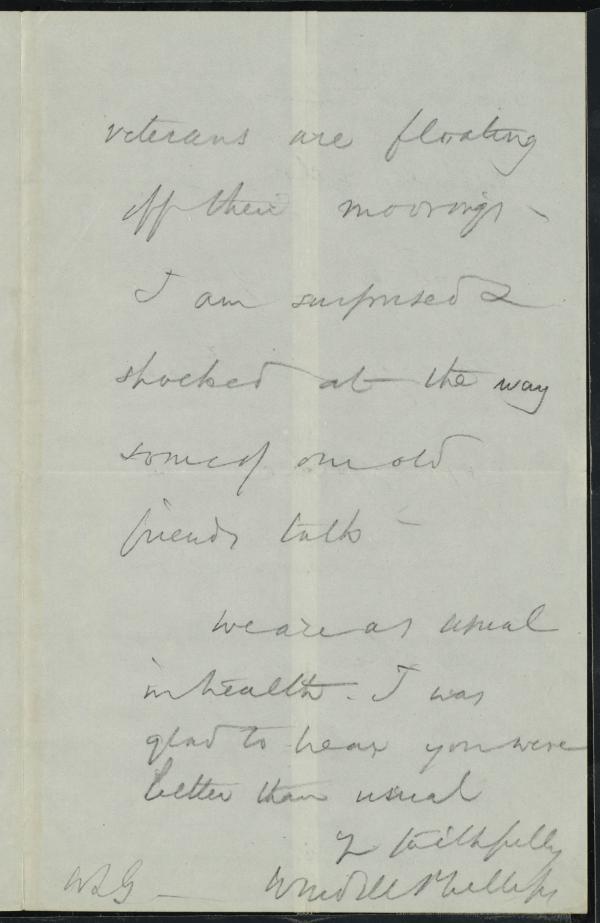 veterans are floating
off their moorings -
I am surprised &
shocked at the way
some of our old
friends talk -
We are as usual
in health. I was
glad to hear you were
better than usual
Yr faithfully
WLG - Wendell Phillips